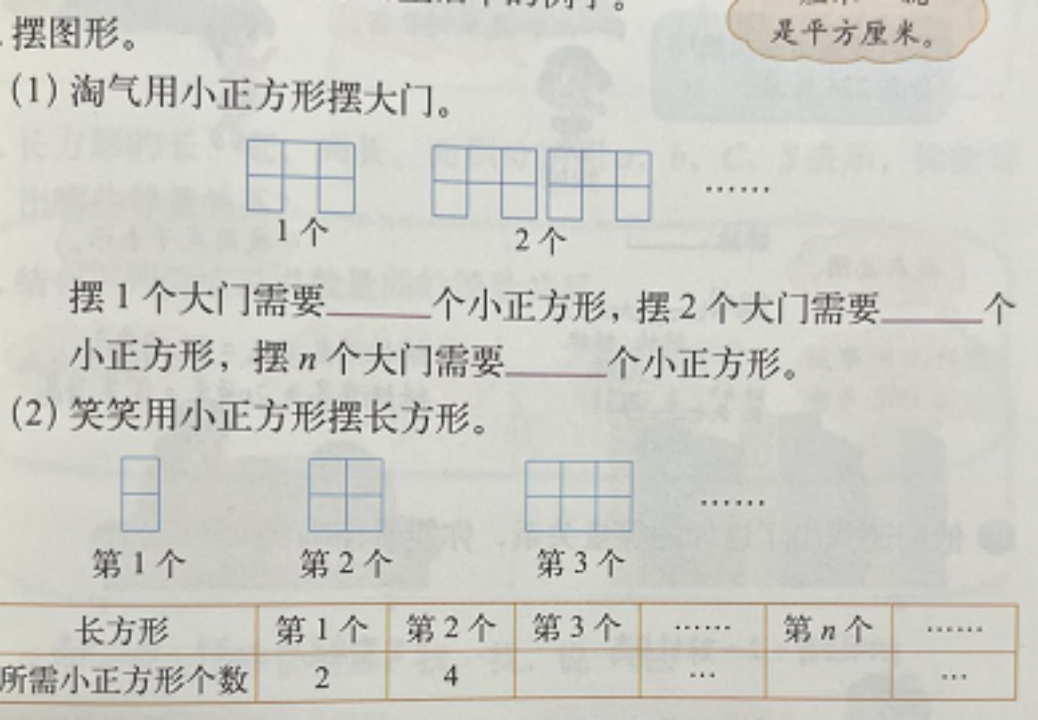 是平方厘米。
摆图形。
(1) 淘气用小正方形摆大门。
……
1 个
2 个
摆 1 个大门需要______个小正方形，摆 2 个大门需要______个
小正方形，摆 n 个大门需要______个小正方形。
(2) 笑笑用小正方形摆长方形。
……
第 1 个 第 2 个 第 3 个
长方形 第 1 个 第 2 个 第 3 个 …… 第 n 个 ……
所需小正方形个数 2 4 … …